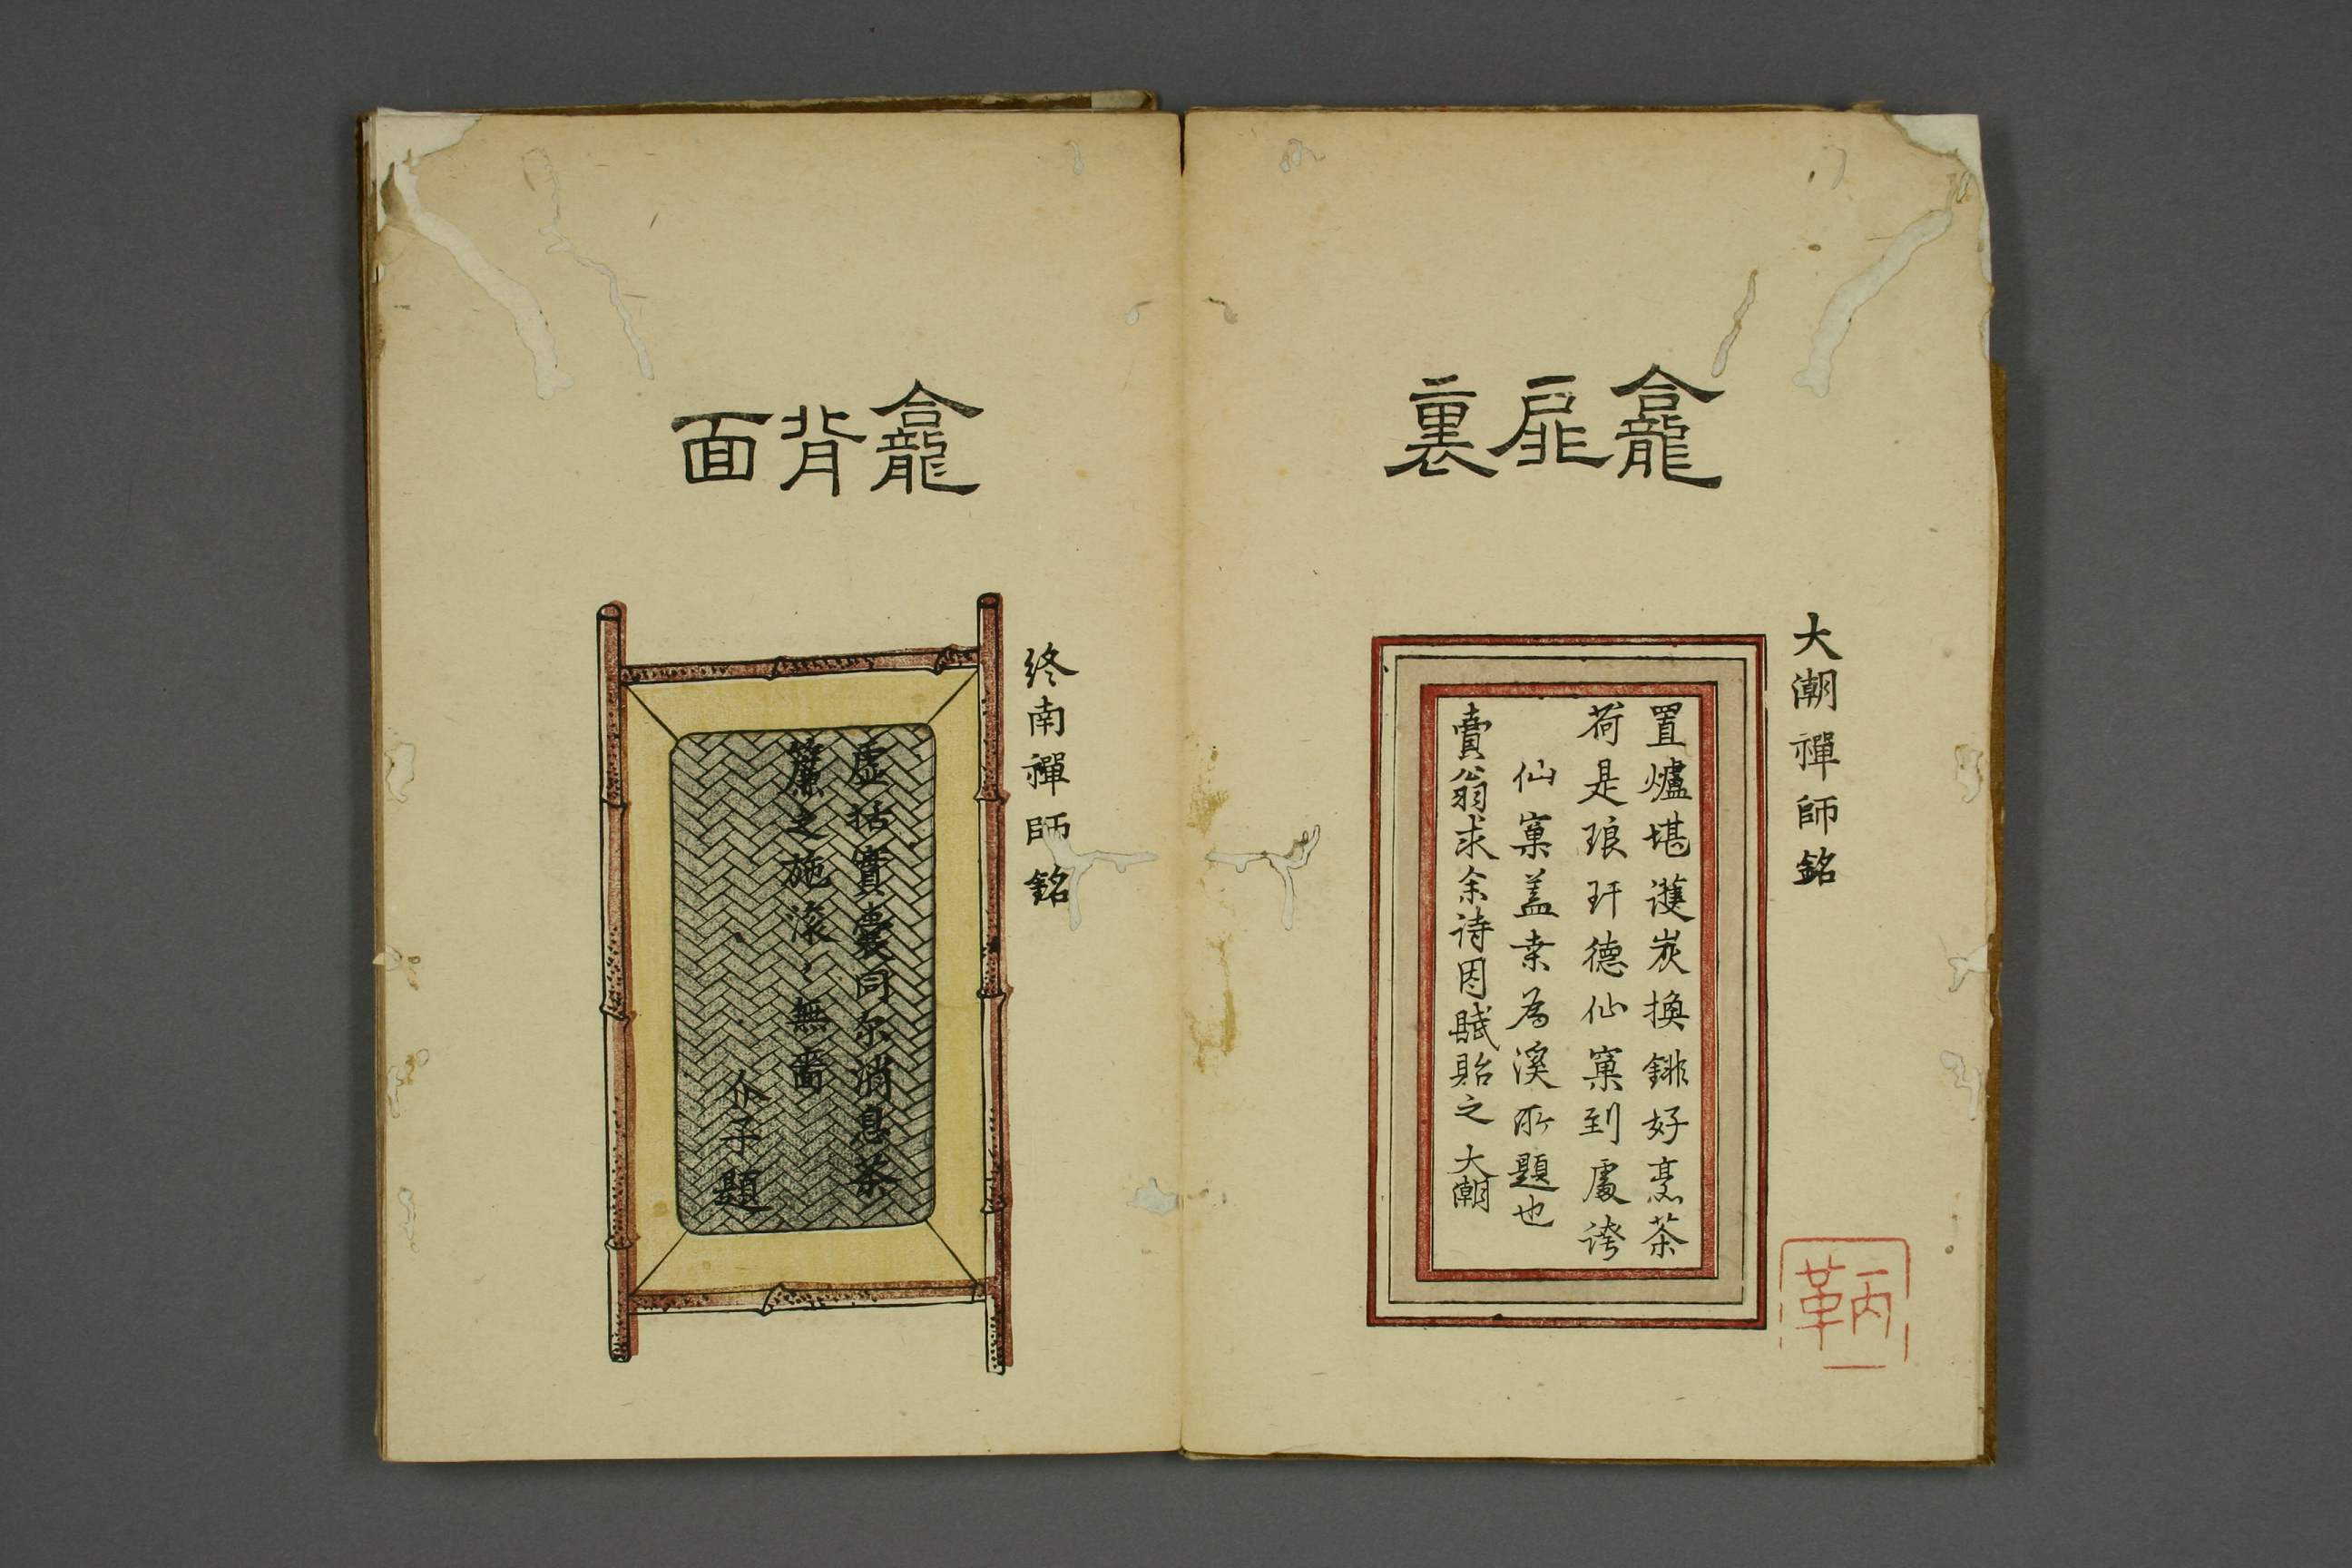 龕扉裏
大潮禪師銘
置爐堪護炭換鏵好烹茶
荷是琅玕德仙窠到處誇
仙窠蓋桒為溪所題也
賣翁求余詩因賦貽之 大潮
龕背面
終南禪師銘
虛括實囊同尔消息茶
簾之施滾〻無嗇
介子題